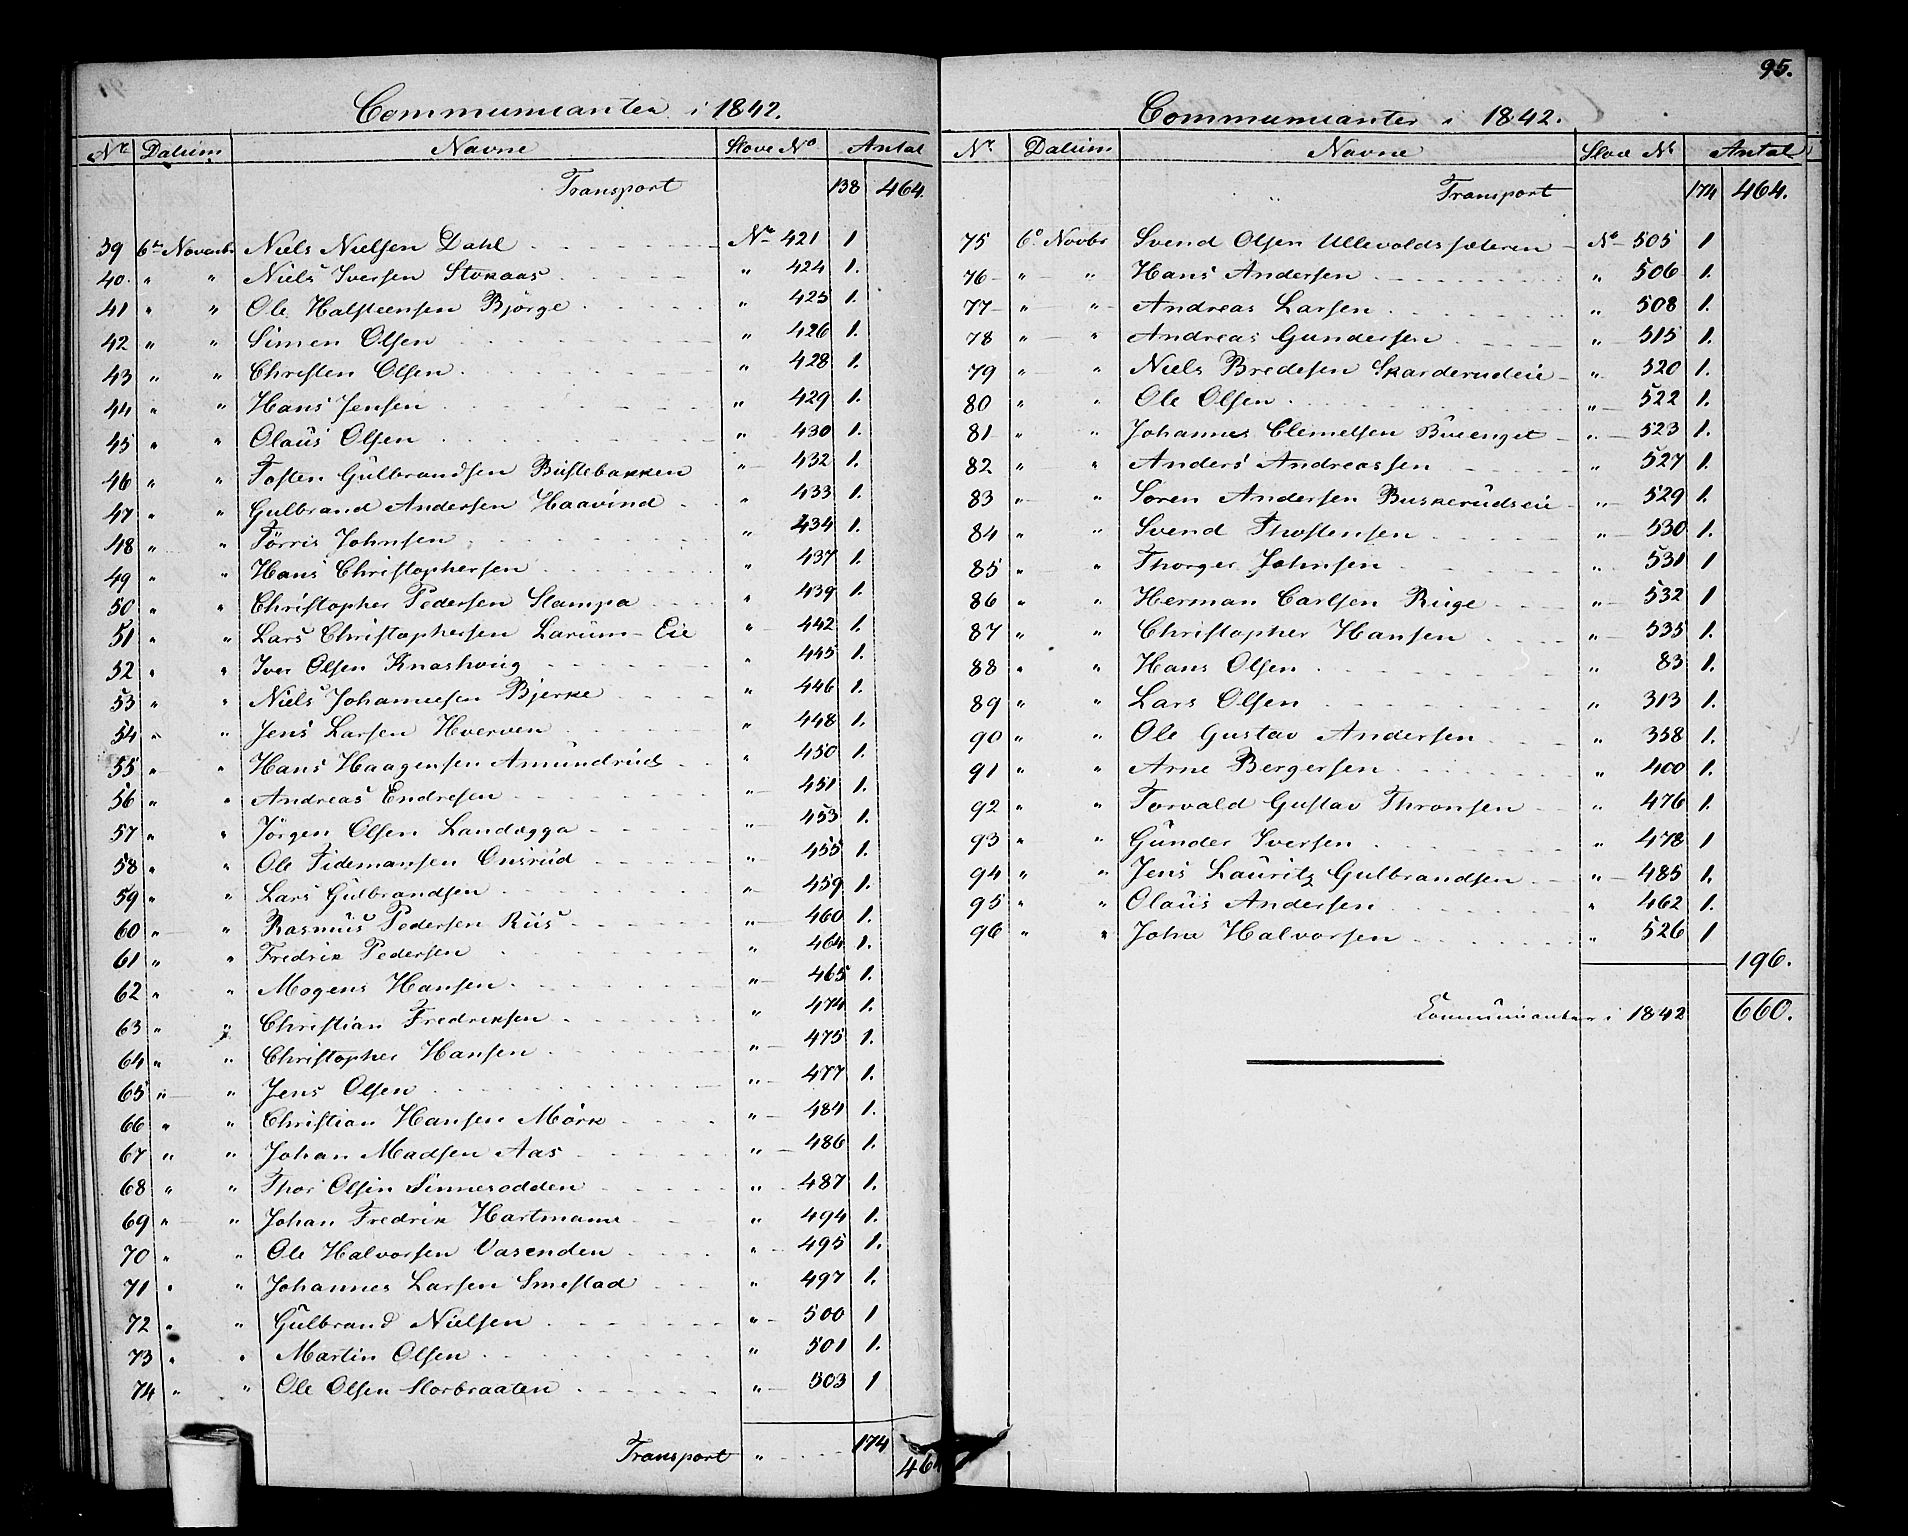 Communicanter i 1842.
Nr Datum Navne Slave No Antal
Transport 138 464.
39 6te Novembr Niels Nielsen Dahl No 421 1
40. " " Niels Iversen Stokaas " 424 1.
41 " " Ole Halsteensen Bjørge " 425 1.
42 " " Simen Olsen " 426 1.
43 " " Christen Olsen " 428 1.
44 " " Hans Jensen " 429 1.
45 " " Olaus Olsen " 430 1.
46 " " Tosten Gulbrandsen Bustebakken " 432 1.
47 " " Gulbrand Andersen Haavind " 433 1.
48 " " Tørris Johnsen " 434 1.
49 " " Hans Christophersen " 437 1.
50 " " Christopher Pedersen Stampa " 439 1.
51 " " Lars Christophersen Larum-Eie " 442 1.
52 " " Iver Olsen Knashoug " 445 1.
53 " " Niels Johannesen Bjerke " 446 1.
54 " " Jens Larsen Hverven " 448 1.
55 " " Hans Haagensen Amundrud " 450 1.
56 " " Andreas Endresen " 451 1.
57 " " Jörgen Olsen Landegga " 453 1.
58 " " Ole Tidemansen Onsrud " 455 1.
59 " " Lars Gulbrandsen " 459 1.
60 " " Rasmus Pedersen Riis " 460 1.
61 " " Fredrik Pedersen " 464 1.
62 " " Mogens Hansen " 465 1.
63 " " Christian Fredriksen " 474 1.
64 " " Christopher Hansen " 475 1.
65 " " Jens Olsen " 477 1.
66 " " Christian Hansen Mörk " 484 1.
67 " " Johan Madsen Aas " 486 1.
68 " " Thor Olsen Finnesodden " 487 1.
69 " " Johan Fredrik Hartmann " 494 1.
70 " " Ole Halvorsen Vasenden " 495 1.
71 " " Johannes Larsen Smestad " 497 1.
72 " " Gulbrand Nielsen " 500 1
73 " " Martin Olsen " 501 1.
74 " " Ole Olsen Storbraaten " 503 1
Transport " 174 464
95.
Communicanter i 1842.
Nr Datum Navne Slave No Antal
Transport 174 464.
75 6te Novbr Svend Olsen Ullevoldssæteren No 505 1
76 " " Hans Andersen " 506 1.
77 " " Andreas Larsen " 508 1.
78 " " Andreas Gundersen " 515 1.
79 " " Niels Bredesen Skarderudeie " 520 1.
80 " " Ole Olsen " 522 1.
81 " " Johannes Clemetsen Bueenget " 523 1.
82 " " Anders Andreassen " 527 1.
83 " " Søren Andersen Buskerudseie " 529 1.
84 " " Svend Thostensen " 530 1.
85 " " Thorger Johnsen " 531 1
86 " " Herman Carlsen Ruge " 532 1
87 " " Christopher Hansen " 535 1.
88 " " Hans Olsen " 83 1.
89 " " Lars Olsen " 313 1.
90 " " Ole Gustav Andersen " 358 1.
91 " " Arne Bergersen " 400 1.
92 " " Torvald Gustav Thronsen " 476 1.
93 " " Gunder Iversen " 478 1
94 " " Jens Lauritz Gulbrandsen " 485 1.
95 " " Olaus Andersen " 462 1.
96 " " John Halvorsen " 526 1
196.
Communicanter i 1842 660.